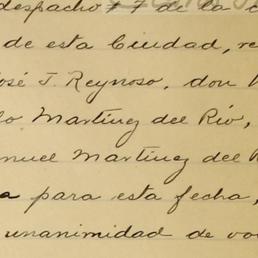 despacho #7 de la
de esta Ciudad, re
José T. Reynoso, don
lo Martínez del Río,
anuel Martínez del R
a para esta fecha,
unanimidad de vo